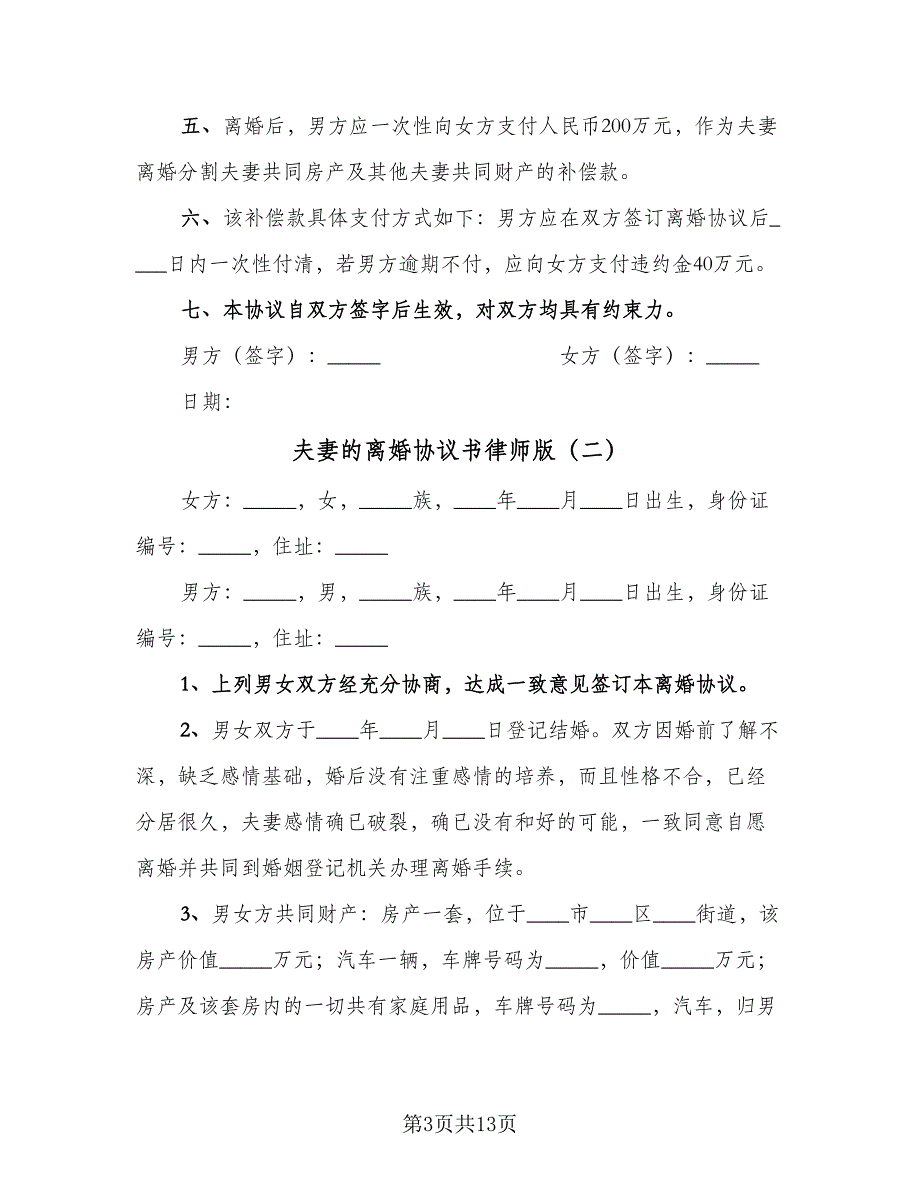 五、离婚后，男方应一次性向女方支付人民币200万元，作为夫妻
离婚分割夫妻共同房产及其他夫妻共同财产的补偿款。
六、该补偿款具体支付方式如下：男方应在双方签订离婚协议后_
___日内一次性付清，若男方逾期不付，应向女方支付违约金40万元。
七、本协议自双方签字后生效，对双方均具有约束力。
男方（签字）：_____ 女方（签字）：_____
日期：
夫妻的离婚协议书律师版（二）
女方：_____，女，_____族，____年____月____日出生，身份证
编号：_____，住址：_____
男方：_____，男，_____族，____年____月____日出生，身份证
编号：_____，住址：_____
1、上列男女双方经充分协商，达成一致意见签订本离婚协议。
2、男女双方于____年____月____日登记结婚。双方因婚前了解不
深，缺乏感情基础，婚后没有注重感情的培养，而且性格不合，已经
分居很久，夫妻感情确已破裂，确已没有和好的可能，一致同意自愿
离婚并共同到婚姻登记机关办理离婚手续。
3、男女方共同财产：房产一套，位于____市____区____街道，该
房产价值_____万元；汽车一辆，车牌号码为_____，价值_____万元；
房产及该套房内的一切共有家庭用品，车牌号码为_____，汽车，归男
第3页共13页